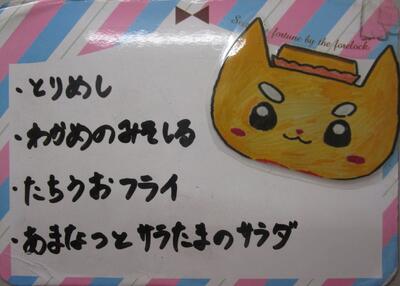 Seize fortune by the forelock
・とりめし
・わかめのみそしる
・たちうおフライ
・あまなっとサラたまのサラダ